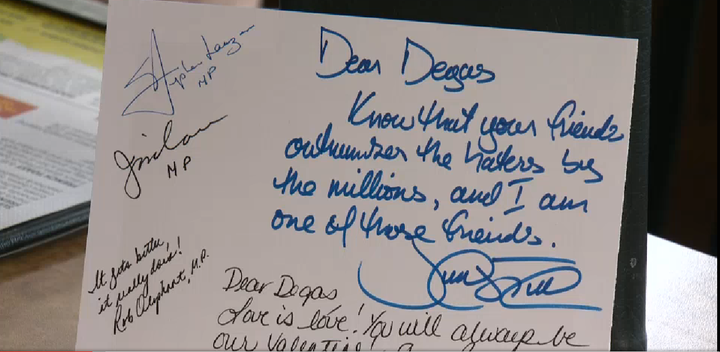 Dear Degas
Know that your friends
outnumber the haters by
the millions, and I am
one of those friends.
MP
MP
It gets better,
it really does!
Rob Oliphant, M.P.
Dear Degas
Love is love! You will always be
our Valentine!